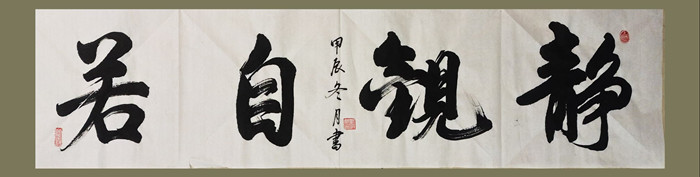 静觀自若
甲辰冬月書